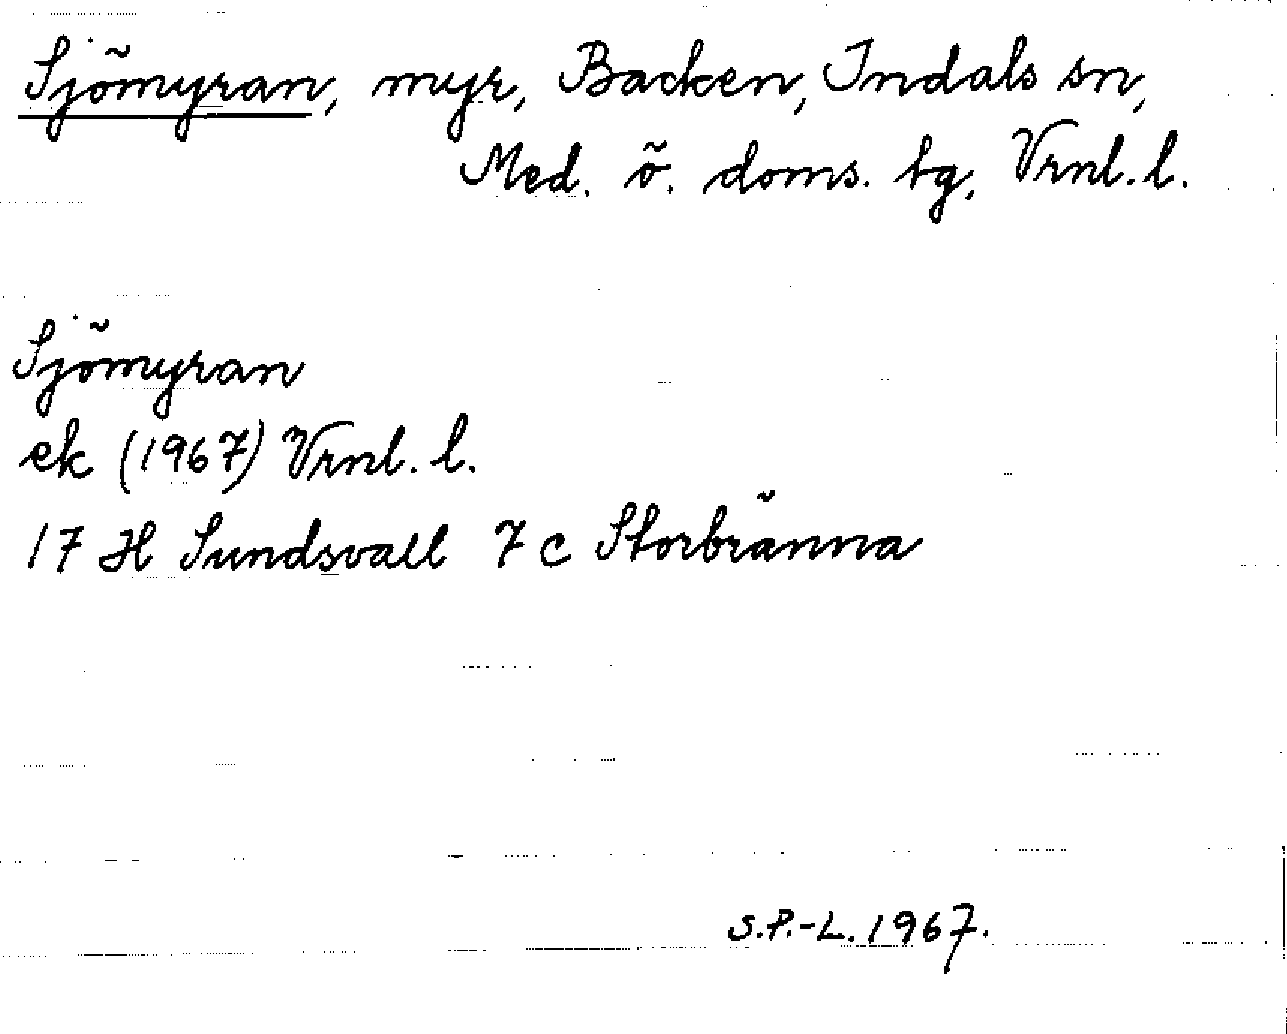 Sjömyran, myr, Backen, Indals sn,
Med. ö. doms. tg, Vrnl. l.
Sjömyran
ek (1967) Vrnl. l.
17 H Sundsvall 7 c Storbränna
S.P.-L. 1967.